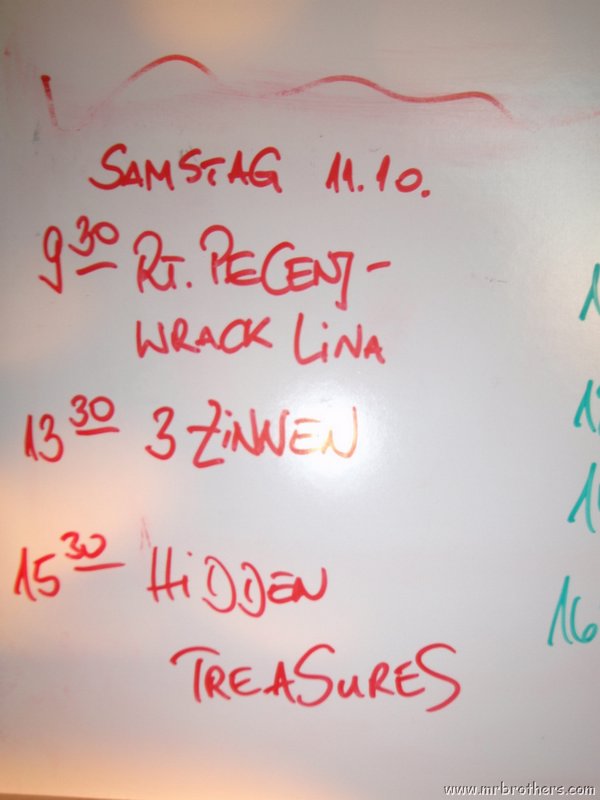 SAMSTAG 11.10.
9 30 RT. PECENJ -
WRACK LINA
13 30 3 ZINNEN
15 30 HIDDEN
TREASURES
16
www.mrbrothers.com